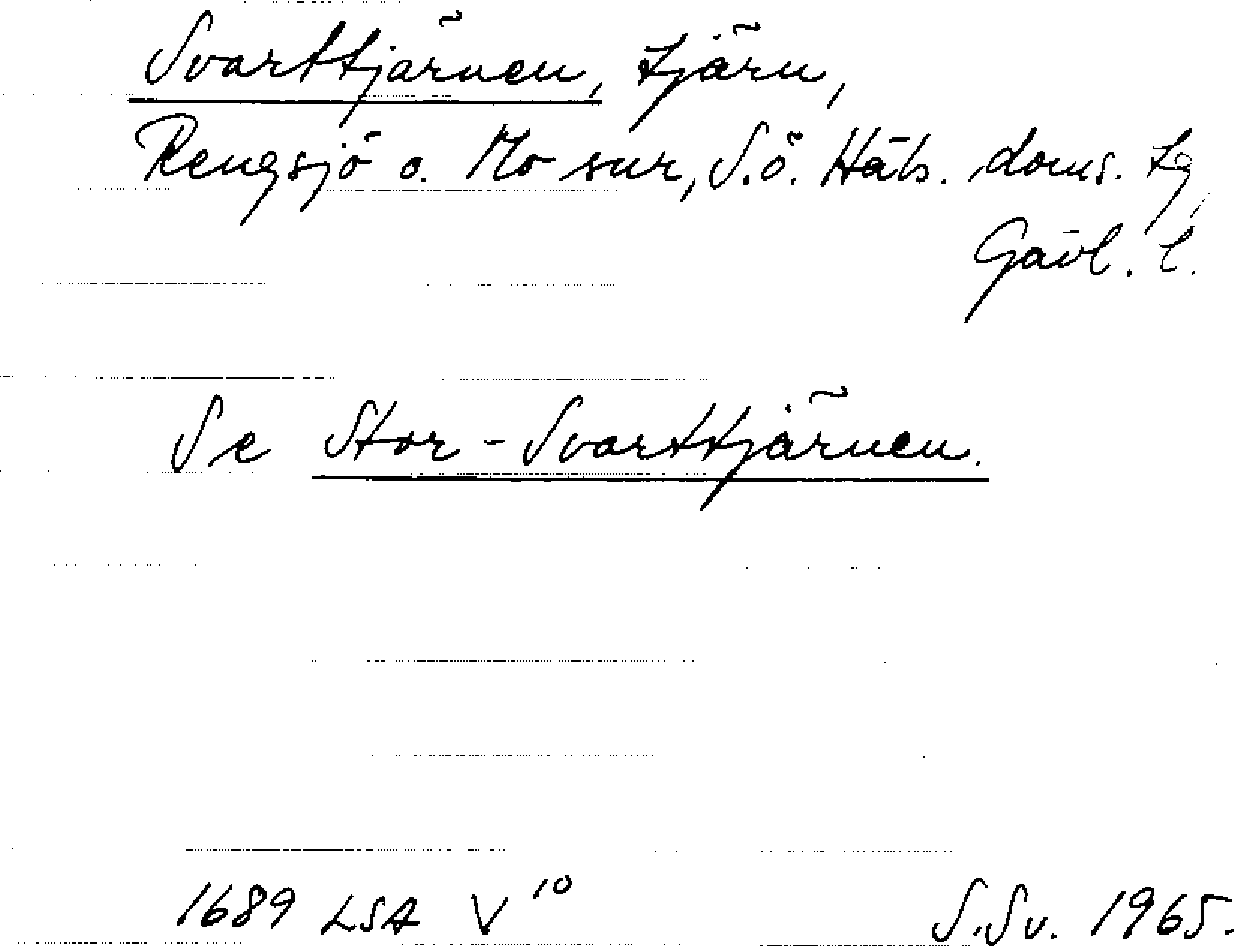 Svarttjärnen, tjärn,
Rengsjö o. Mo snr, S.ö. Häls. doms. tg,
Gävl. l.
Se Stor-Svarttjärnen.
1689 LSA V 10
S.Sv. 1965.